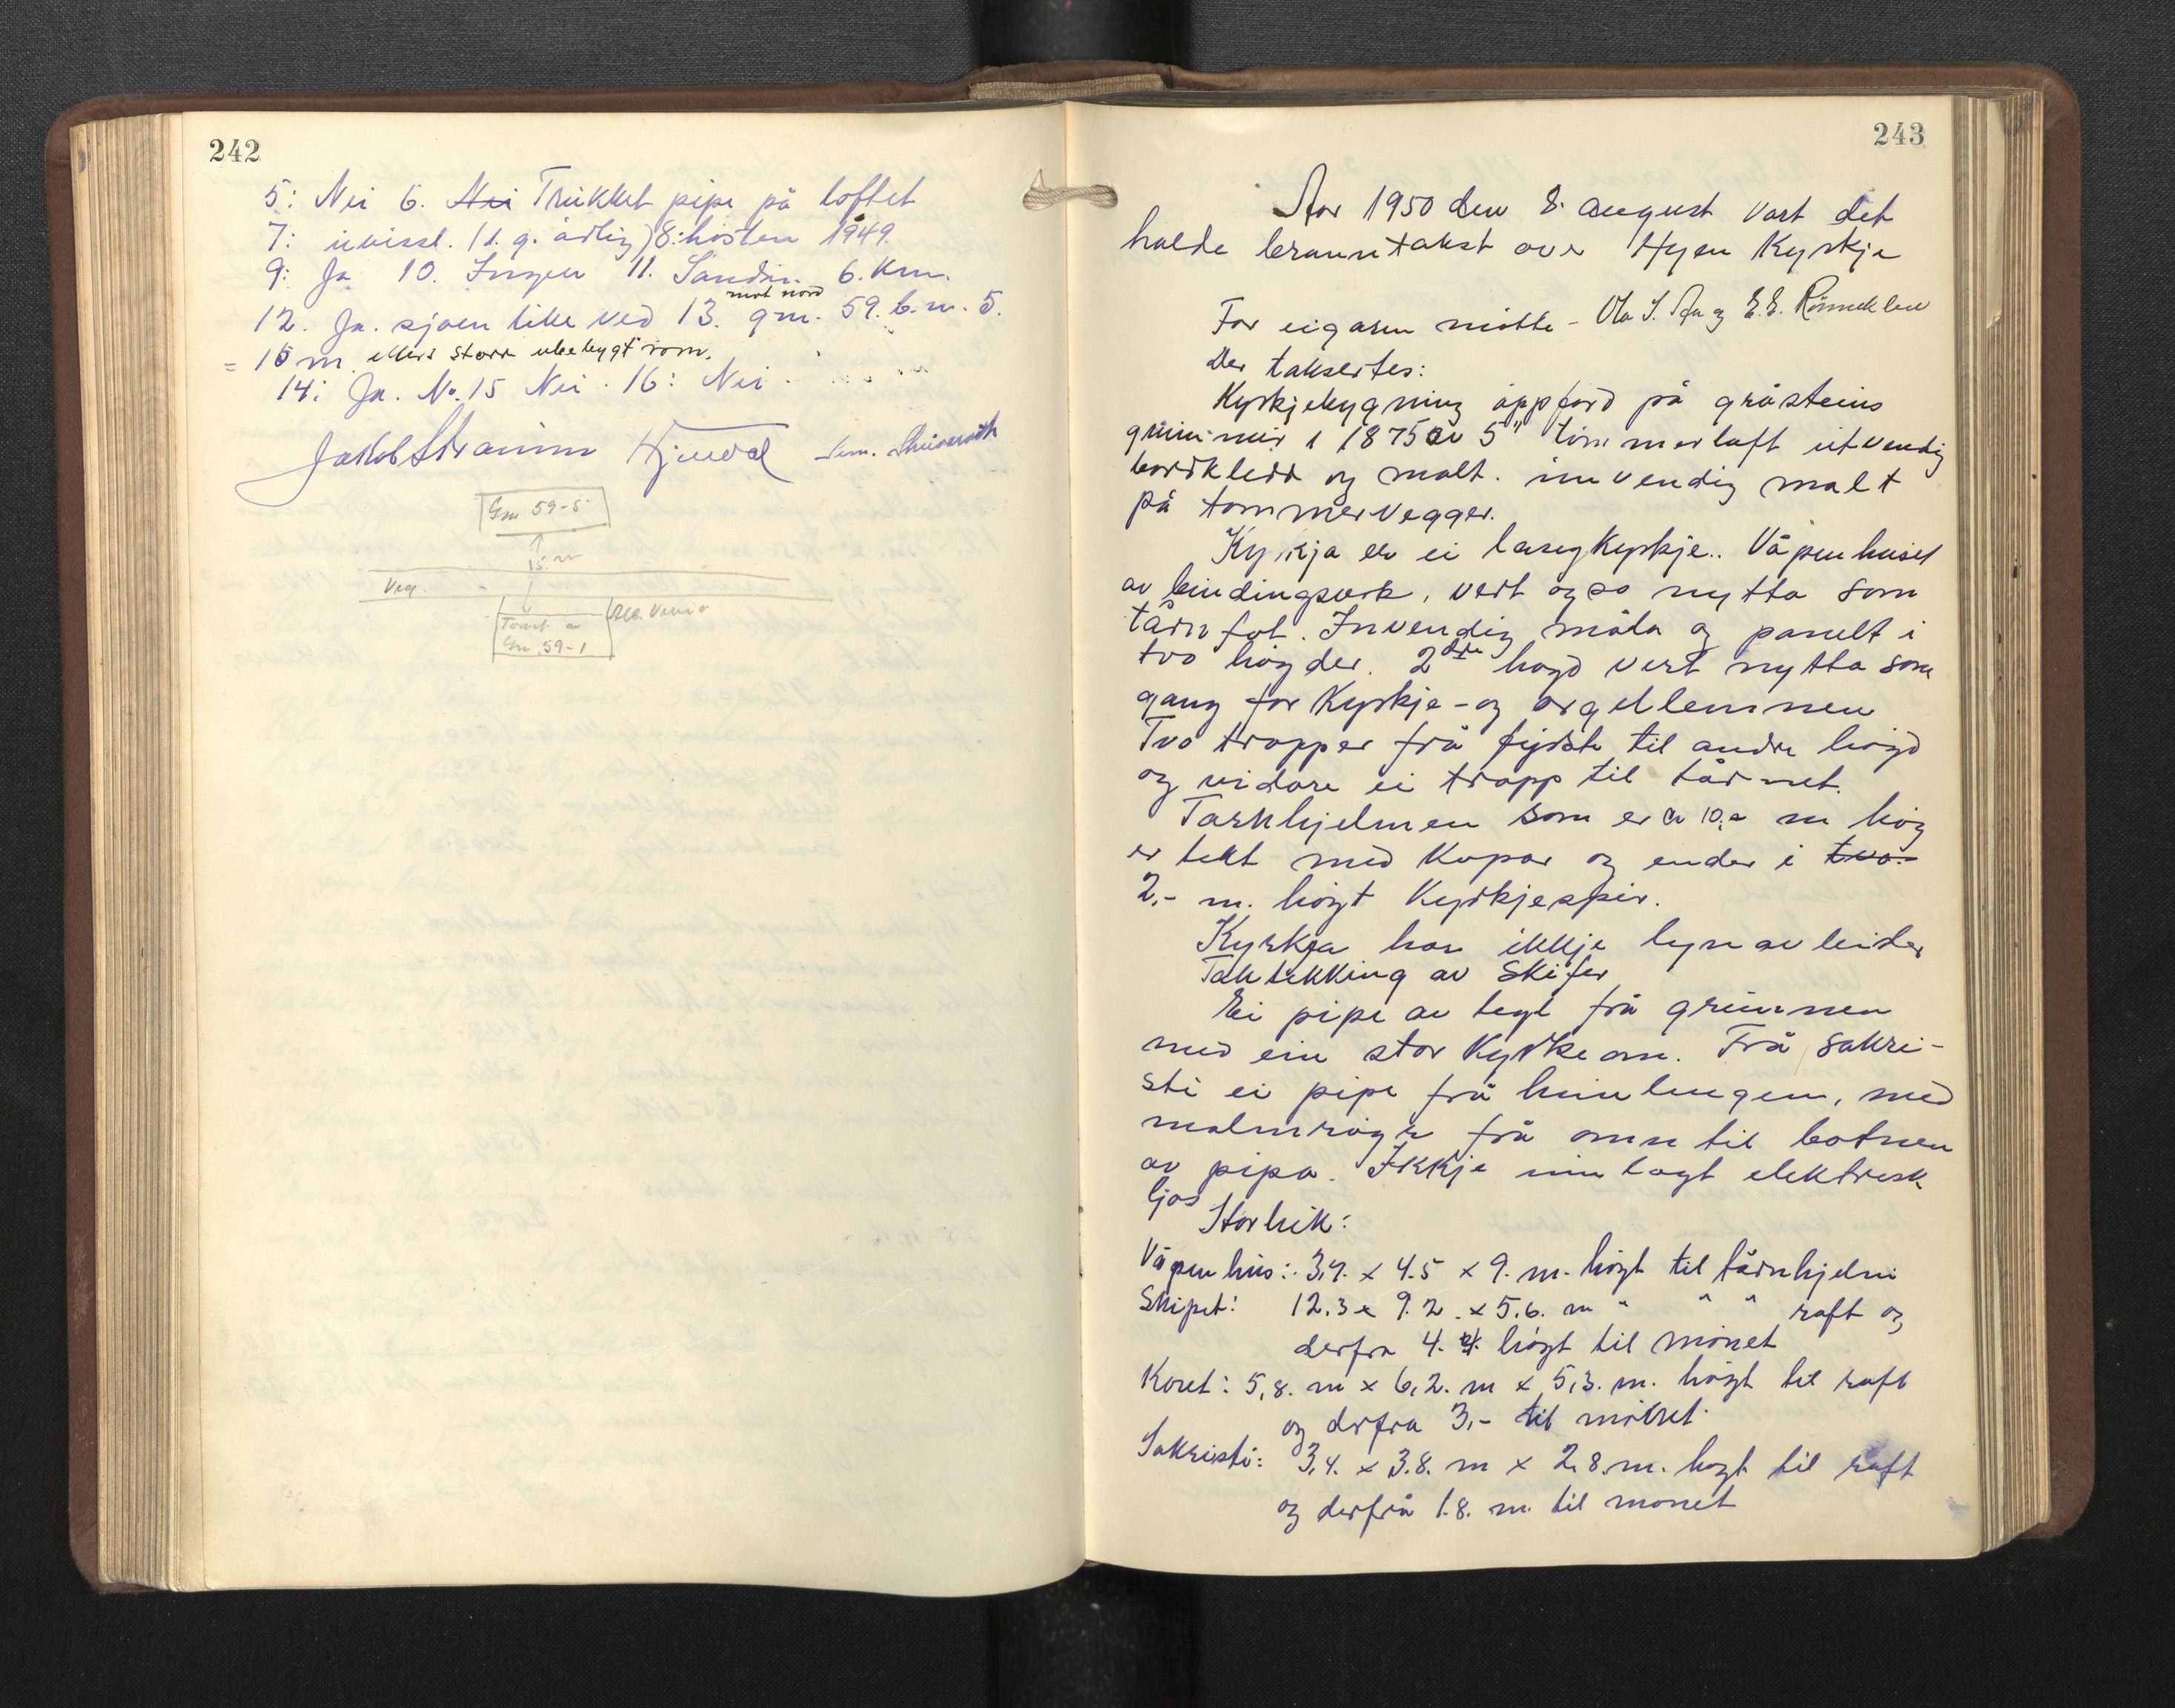 242
5: Nei 6. Nei Trukket pipe på loftet
7: uvisst. (1. g. årlig) 8: hösten 1949.
9: Ja 10. Ingen 11. Sandin 6. km.
12. Ja. sjøen like ved 13. mot nord gm. 59. b.n. 5.
= 15 m. ellers større ubebygt rom.
14: Ja. No. 15 Nei. 16: Nei.
Jakob
Gm 59-5
15 m
Veg
Tomt av
Gm. 59-1
243
År 1950 den 8. august vart det
halde branntakst over Hyen Kyrkje
For eigaren møtte - Ola J. Aa og E. E. Rønnekleiv
Der taksertes:
Kyrkjebygning oppförd på gråsteins
grunnmur i 1875 av 5" tömmerlaft utvendig
bordkledd og malt. innvendig malt
på tømmervegger.
Kyrkja er ei langkyrkje. Våpenhuset
av bindingsverk, vert ogso nytta som
tårnfot. Invendig måla og panelt i
tvo högder. 2dre högd vert nytta som
gang for Kyrkje- og orgellemmen
Tvo tropper frå fyrste til andre högd
og vidare ei tropp til tårnet.
Tårnhjelmen som er ca 10,- m hög
er tekt med Kopar og ender i tvo.
2,- m. högt Kyrkjespir.
Kyrkja har ikkje lynavleider
Taktekking av Skifer
Ei pipe av tegl frå grunnen
med ein stor Kyrkeomn. Frå sakri-
sti ei pipe frå himlingen, med
malmrøyr frå omn til botnen
av pipa. Ikkje innlagt elektrisk
ljos
Storleik:
Våpenhus: 3,4. x 4.5 x 9. m. högt til tårnhjelm
Skipet: 12.3 x 9.2. x 5.6. m " " " raft og
derfra 4. 4. högt til mönet
Koret: 5,8. m x 6,2. m x 5,3. m. högt til raft
og derfra 3,- til mönet.
Sakristi: 3,4. x 3.8. m x 2.8. m. högt til raft
og derfrå 1.8. m. til mönet